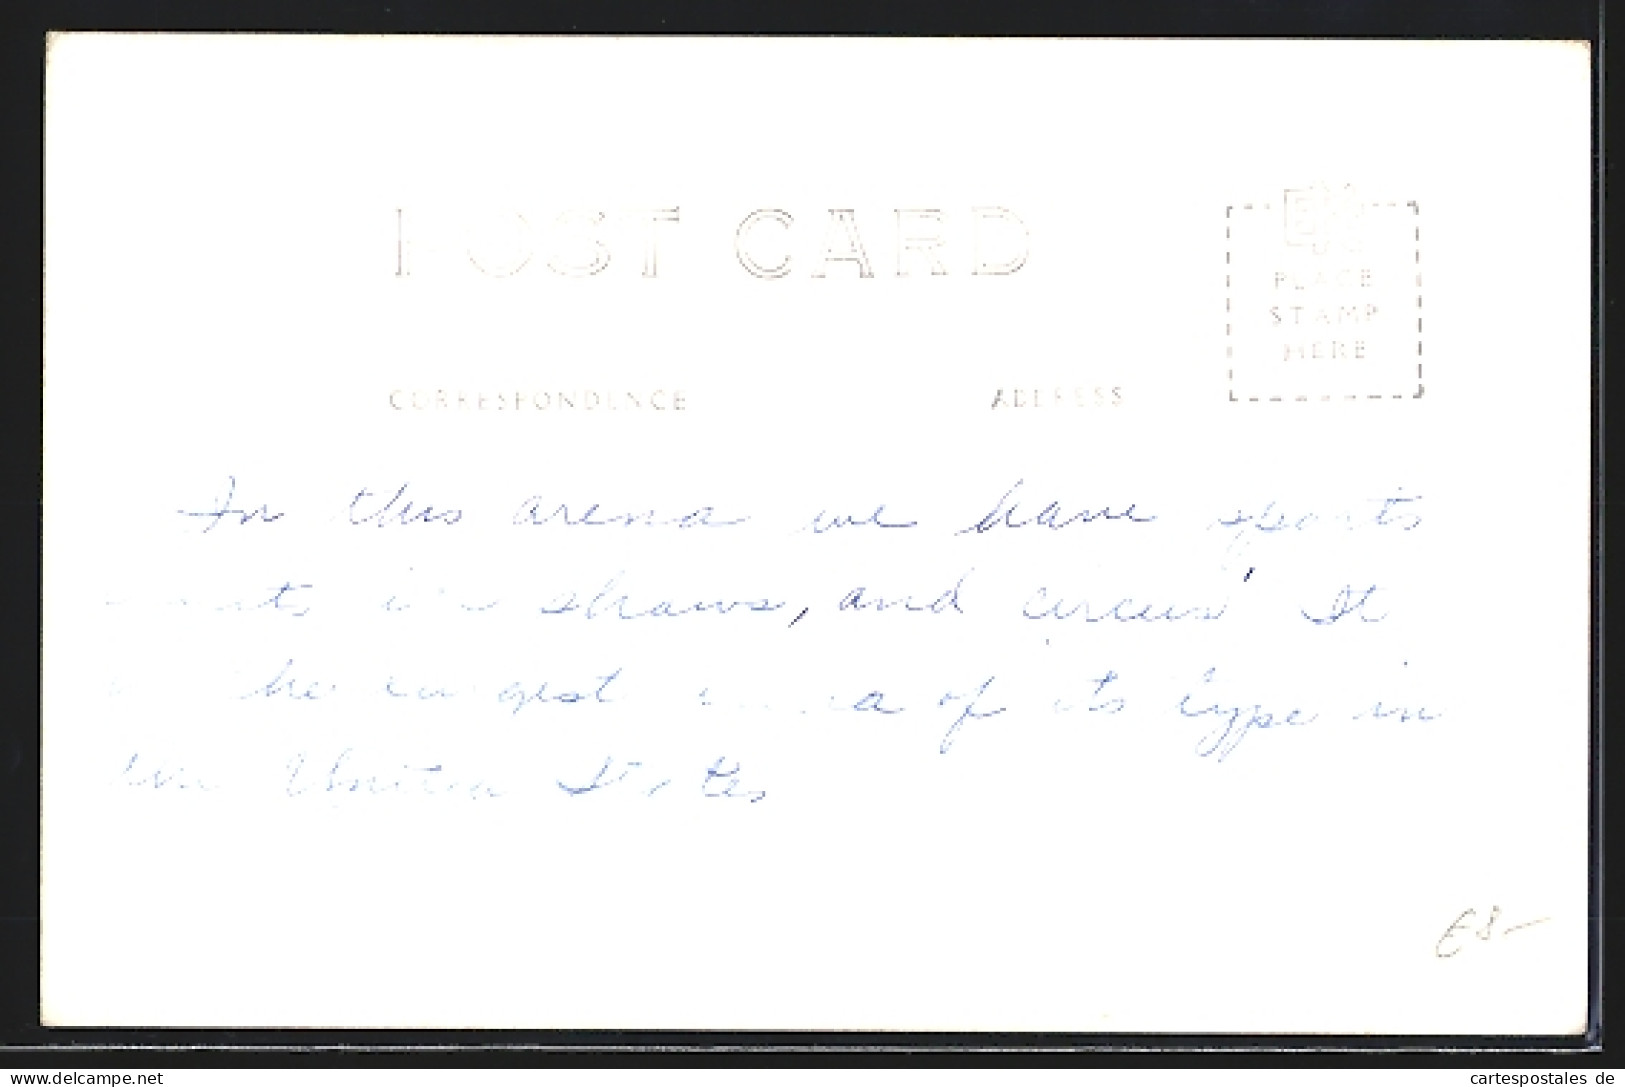 POST CARD
PLACE
STAMP
HERE
CORRESPONDENCE
ADDRESS
In this arena we have sports
shows, and circus It
the largest of its type in
the United States
E8-
delcampe.net
cartespostales de